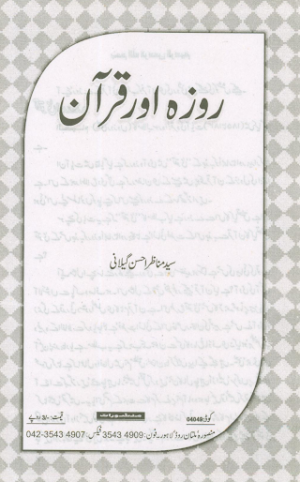 روزہ اور قرآن
سید مناظر احسن گیلانی
کوڈ: 04049
منصورہ ملتان روڈ لاہور۔ فون: 4909 3543 فیکس: 4907 3543-042